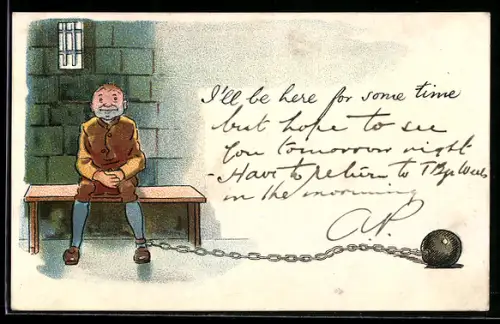 I'll be here for some time
but hope to see
you tomorrow night
- Have to return to T. Wells
in the morning
A.P.